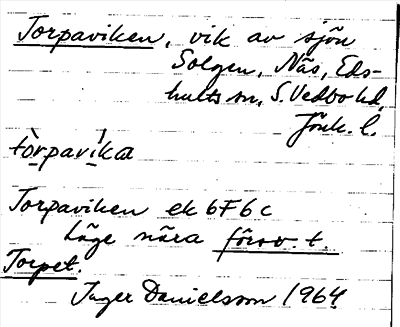 Torpaviken, vik av sjön
Solgen, Näs, Eds-
hults sn, S. Vedbo hd,
Jönk. l.
tòrpavíka
Torpaviken ek 6F6c
Läge nära förov. t.
Torpet.
Inger Danielsson 1964